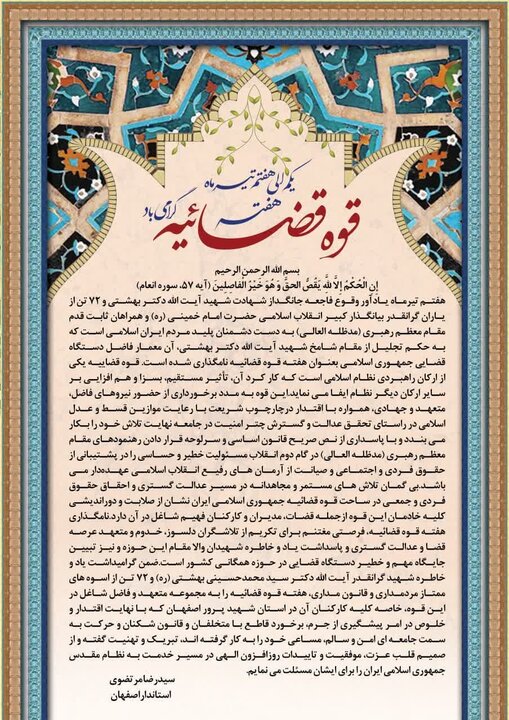 یکم الی هفتم تیر ماه
هفته
گرامی باد
قوه قضائیه
بسم الله الرحمن الرحیم
إن الْحُكْمُ إِلاَّ للَّهِ يَقُصُّ الحقَّ وَ هُوَ خَيْرُ الْفاصِلِينَ (آیه ۵۷، سوره انعام)
هفتم تیرماه یادآور وقوع فاجعه جانگداز شهادت شهید آیت الله دکتر بهشتی و ۷۲ تن از
یاران گرانقدر بیانگذار کبیر انقلاب اسلامی حضرت امام خمینی (ره) و همراهان ثابت قدم
مقام معظم رهبری (مدظله العالی) به دست دشمنان پلید مردم ایران اسلامی است که
به حکم تجلیل از مقام شامخ شهید آیت الله دکتر بهشتی، آن معمار فاضل دستگاه
قضایی جمهوری اسلامی بعنوان هفته قوه قضائیه نامگذاری شده است. قوه قضاییه یکی
از ارکان راهبردی نظام اسلامی است که کار کرد آن، تأثیر مستقیم، بسزا و هم افزایی بر
سایر ارکان دیگر نظام ایفا می نماید.این قوه به مدد برخورداری از حضور نیروهای فاضل،
متعهد و جهادی، همواره با اقتدار درچارچوب شریعت با رعایت موازین قسط و عدل
اسلامی در راستای تحقق عدالت و گسترش چتر امنیت در جامعه نهایت تلاش خود را بکار
می بندد و با پاسداری از نص صریح قانون اساسی و سرلوحه قرار دادن رهنمودهای مقام
معظم رهبری (مدظله العالی) در گام دوم انقلاب مسئولیت خطیر و حساسی را در پشتیبانی از
حقوق فردی و اجتماعی و صیانت از آرمان های رفیع انقلاب اسلامی عهده‌دار می
باشد.بی گمان تلاش های مستمر و مجاهدانه در مسیر عدالت گستری و احقاق حقوق
فردی و جمعی در ساحت قوه قضائیه جمهوری اسلامی ایران نشان از صلابت و دوراندیشی
کلیه خادمان این قوه ازجمله قضات، مدیران و کارکنان فهیم شاغل در آن دارد.نامگذاری
هفته قوه قضائیه، فرصتی مغتنم برای تکریم از تلاشگران دلسوز، خدوم و متعهد عرصه
قضا و عدالت گستری و پاسداشت یاد و خاطره شهیدان والا مقام این حوزه و نیز تبیین
جایگاه مهم و خطیر دستگاه قضایی در حوزه همگانی کشور است.ضمن گرامیداشت یاد و
خاطره شهید گرانقدر آیت الله دکتر سید محمدحسینی بهشتی (ره) و ۷۲ تن از اسوه های
ممتاز مردمداری و قانون مداری، هفته قوه قضائیه را به مجموعه متعهد و فاضل شاغل در
این قوه، خاصه کلیه کارکنان آن در استان شهید پرور اصفهان که با نهایت اقتدار و
خلوص در امر پیشگیری از جرم، برخورد قاطع با متخلفان و قانون شکنان و حرکت به
سمت جامعه ای امن و سالم، مساعی خود را به کار گرفته اند، تبریک و تهنیت گفته و از
صمیم قلب عزت، موفقیت و تاییدات روزافزون الهی در مسیر خدمت به نظام مقدس
جمهوری اسلامی ایران را برای ایشان مسئلت می نمایم.
سیدرضا مرتضوی
استاندار اصفهان